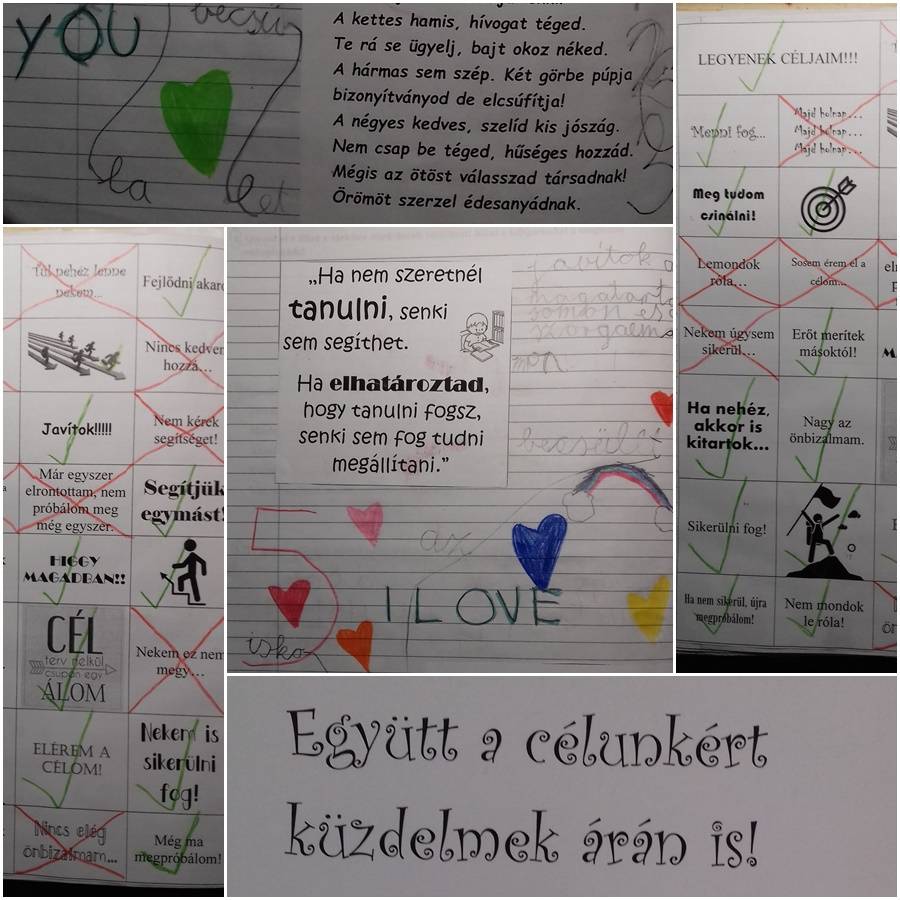 YOU
becsü
la
let
A kettes hamis, hívogat téged.
Te rá se ügyelj, bajt okoz néked.
A hármas sem szép. Két görbe púpja
bizonyítványod de elcsúfítja!
A négyes kedves, szelíd kis jószág.
Nem csap be téged, hűséges hozzád.
Mégis az ötöst válasszad társadnak!
Örömöt szerzel édesanyádnak.
LEGYENEK CÉLJAIM!!!
Menni fog...
Majd holnap...
Majd holnap...
Majd holnap...
Meg tudom
csinálni!
Lemondok
róla...
Sosem érem el a
célom...
Nekem úgysem
sikerül...
Erőt merítek
másoktól!
Ha nehéz,
akkor is
kitartok...
Nagy az
önbizalmam.
Sikerülni fog!
Ha nem sikerül, újra
megpróbálom!
Nem mondok
le róla!
Túl nehéz lenne
nekem...
Fejlődni akaro
Nincs kedvem
hozzá...
Javítok!!!!!
Nem kérek
segítséget!
Már egyszer
elrontottam, nem
próbálom meg
még egyszer.
Segítjük
egymást!
HIGGY
MAGADBAN!!
CÉL
terv nélkül
csupán egy
ÁLOM
Nekem ez nem
megy...
ELÉREM A
CÉLOM!
Nekem is
sikerülni
fog!
Nincs elég
önbizalmam...
Még ma
megpróbálom!
„Ha nem szeretnél
tanulni, senki
sem segíthet.
Ha elhatároztad,
hogy tanulni fogsz,
senki sem fog tudni
megállítani.”
javítok a
magatart
somon és
szorgalm
mon
becsül
5
az
I LOVE
isko
Együtt a célunkért
küzdelmek árán is!